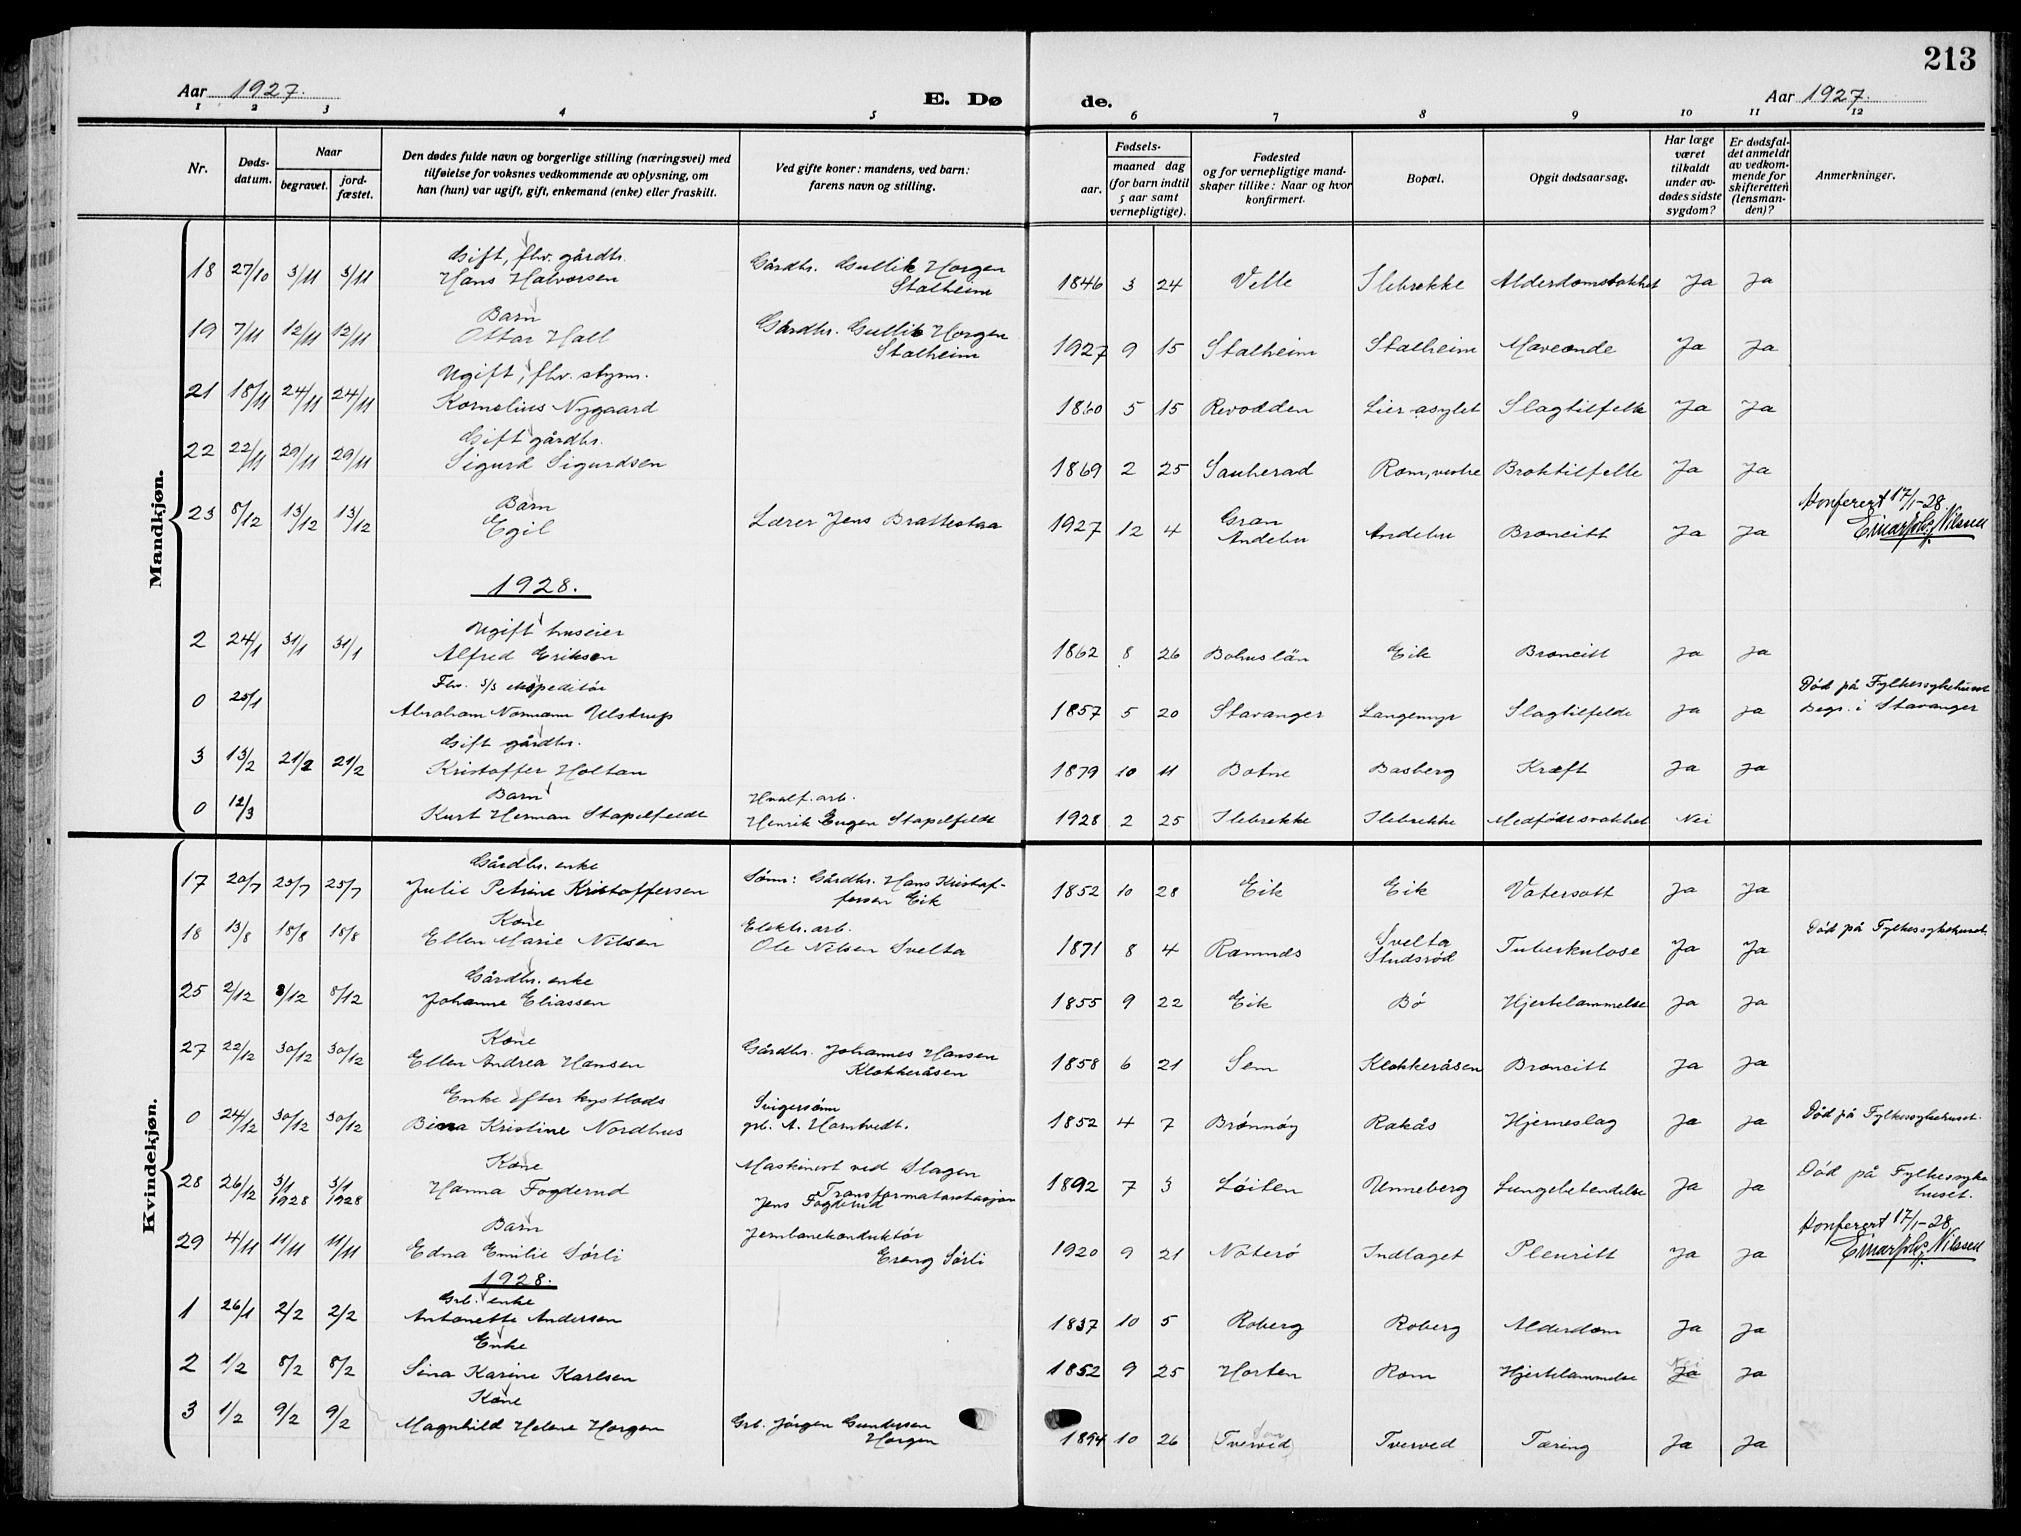 213
Aar 1927.
E. Dø
de.
Aar 1927.
1 2 3 4 5 6 7 8 9 10 11 12
Nr.
Døds-
datum.
Naar
begravet.
jord-
fæstet.
Den dødes fulde navn og borgerlige stilling (næringsvei) med
tilføielse for voksnes vedkommende av oplysning, om
han (hun) var ugift, gift, enkemand (enke) eller fraskilt.
Ved gifte koner: mandens, ved barn:
farens navn og stilling.
Fødsels-
aar.
maaned dag
(for barn indtil
5 aar samt
vernepligtige).
Fødested
og for vernepligtige mand-
skaper tillike: Naar og hvor
konfirmert.
Bopæl.
Opgit dødsaarsag.
Har læge
været
tilkaldt
under av-
dødes sidste
sygdom?
Er dødsfal-
det anmeldt
av vedkom-
mende for
skifteretten
(lensman-
den)?
Anmerkninger.
Mandkjøn.
Gift, fhv. gårdbr.
18 27/10 3/11 3/11 Hans Halvorsen Gårdbr. Gullik Horgen
Stalheim 1846 3 24 Velle Ilebrekke Alderdomsvakhet Ja Ja
Barn
19 7/11 12/11 12/11 Ottar Hall Gårdbr. Gullik Horgen
Stalheim 1927 9 15 Stalheim Stalheim Maveonde Ja Ja
Ugift, fhv. styrm.
21 18/11 24/11 24/11 Kornelius Nygaard 1860 5 15 Revodden Lier asylet Slagtilfelle Ja Ja
Gift gårdbr.
22 22/11 29/11 29/11 Sigurd Sigurdsen 1869 2 25 Sauherad Rom, vestre Broktilfelle Ja Ja
Barn
23 8/12 13/12 13/12 Egil Lærer Jens Brattestaa 1927 12 4 Gran
Andebu Andebu Broncitt Ja Ja Konferert 17/1-28
Nilssen
1928.
Ugift huseier
2 24/1 31/1 31/1 Alfred Eriksen 1862 8 26 Bohuslän Eik Broncitt Ja Ja
Fhv. s/s ekspeditør
0 25/1 Abraham Normann Ulstrup 1857 5 20 Stavanger Langemyr Slagtilfelde Ja Ja Død på Fylkessykehuset
Begr. i Stavanger
Gift gårdbr.
3 13/2 21/2 21/2 Kristoffer Holtan 1879 10 11 Botne Basberg Kræft Ja Ja
Barn
0 12/3 Kurt Herman Stapelfeldt Hvalf. arb.
Henrik Eugen Stapelfeldt 1928 2 25 Ilebrekke Ilebrekke Medfødt svakhet Nei
Kvindekjøn.
Gårdbr. enke
17 20/7 25/7 25/7 Julie Petrine Kristoffersen Sønn: Gårdbr. Hans Kristof-
fersen Eik 1852 10 28 Eik Eik Vatersott Ja Ja
Kone
18 13/8 18/8 18/8 Ellen Marie Nilsen Elektr. arb.
Ole Nilsen Svelta 1871 8 4 Ramnes Svelta
Studsrød Tuberkulose Ja Ja Død på Fylkessykehuset.
Gårdbr. enke
25 2/12 8/12 8/12 Johanne Eliassen 1855 9 22 Eik Bø Hjertelammelse Ja Ja
Kone
27 22/12 30/12 30/12 Ellen Andrea Hansen Gårdbr. Johannes Hansen
Klokkeråsen 1858 6 21 Sem Klokkeråsen Broncitt Ja Ja
Enke efter kystlods
0 24/12 30/12 30/12 Bina Kristine Nordhus Svigersønn
grb. A. Horntvedt. 1852 4 7 Brønnøy Rakås Hjerneslag Ja Ja Død på Fylkessykehuset.
Kone
28 26/12 3/1 1928 3/1 1928 Hanna Fogderud Maskinert ved Slagen
Transformatorstasjon
Jens Fogderud 1892 7 3 Løiten Unneberg Lungebetendelse Ja Ja Død på Fylkessyke
huset.
Barn
29 4/11 11/11 11/11 Edna Emilie Sørli Jernbanekonduktør
Ereng Sørli 1920 9 21 Nøterø Indlaget Pleuritt Ja Ja Konferert 17/1-28
Nilssen
1928.
Grb. enke
1 26/1 2/2 2/2 Antonette Andersen 1837 10 5 Roberg Roberg Alderdom Ja Ja
Enke
2 1/2 8/2 8/2 Sina Karine Karlsen 1852 9 25 Horten Rom Hjertelammelse Nei Ja Ja
Kone
3 1/2 9/2 9/2 Magnhild Helene Horgen Grb. Jörgen Gundersen
Horgen 1894 10 26 (Tverved) Sem Tverved Tæring Ja Ja